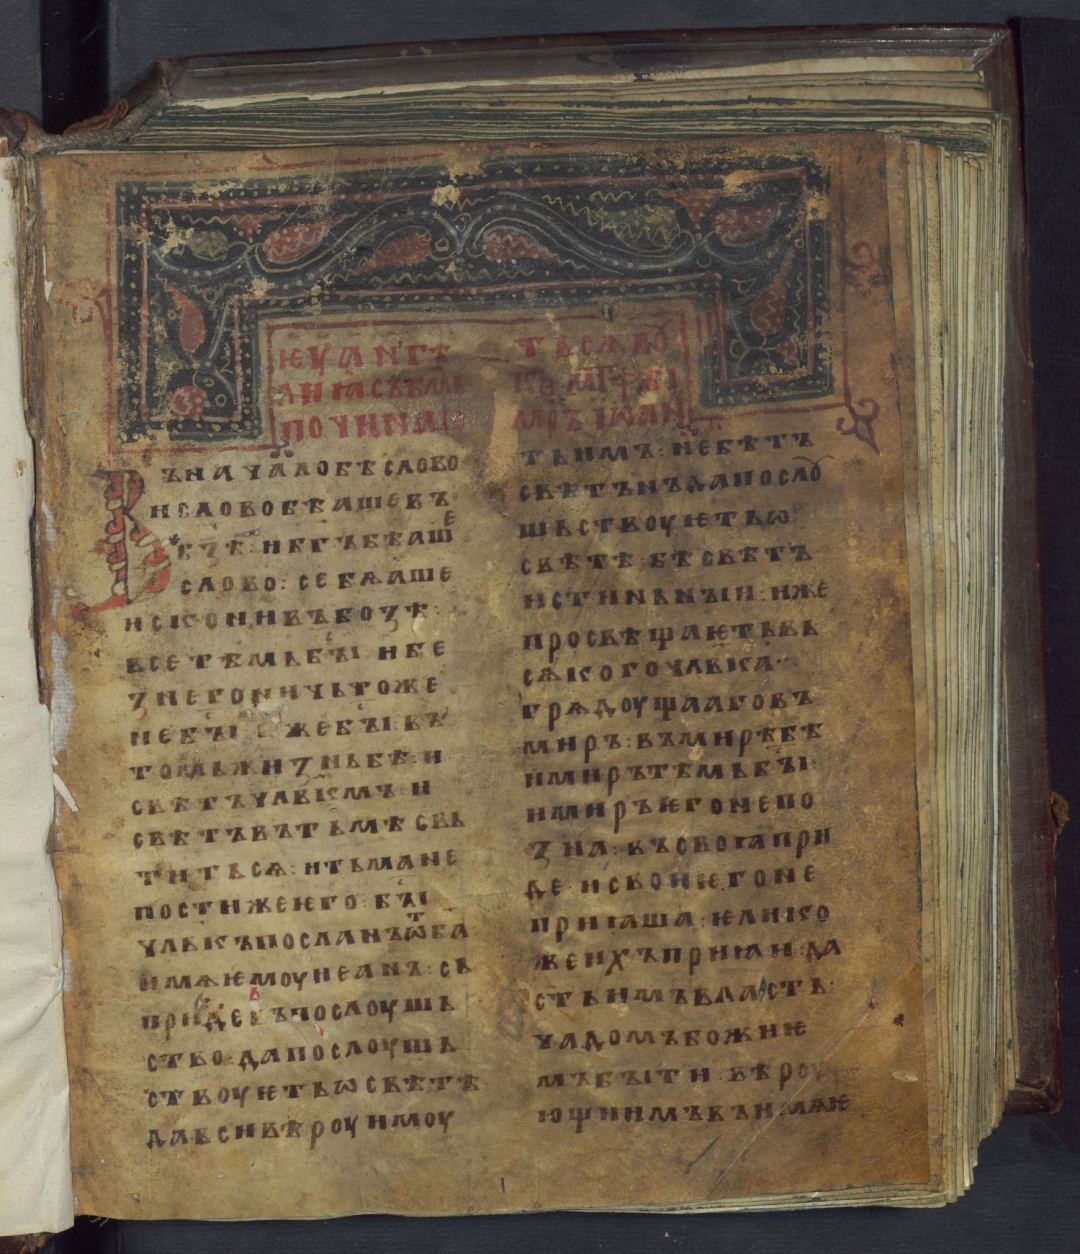 ѥѵанг҃
лиꙗ
почина
ЪНАЧАЛОБѢСЛОВО
ИСЛОВОБѢАШЕВЪ
Б҃ЗѢ:ИБГ҃ЪБѢАШЕ
СЛОВО:СЕБѦАШЕ
ИСКОНИВЪБОЗѢ:
ВСЕТѢМЬБЫ҃ИБЕ
ЗНЕГОНИЧЬТОЖЕ
НЕБЫ҃ ЖЕБЫ҃ВЪ
ТОМЬЖИЗНЬБѢ:И
СВѢТЪЧЛВ҃КМЪ:И
СВѢТЪВЪТЬМѢСВЬ
ТИТЬСѦ:ИТЬМАНЕ
ПОСТИЖЕѤГО:БЫ҃
ЧЛВ҃КЪПОСЛАНЪѾБА҃:
ИМѦѤМОУИѠАНЪ:СЬ
ПРИДЕВЪПОСЛОУШЬ
СТВО:ДАПОСЛОУШЬ
СТВОУѤТЬѠСВѢТѢ
ДАВСИВѢРОУИМОУ
ТЬИМЪ:НЕБѢТЪ
СВѢТЪНЪДАПОСЛОУ
ШЬСТВОУѤТЬѠ
СВѢТѢ:БѢСВѢТЪ
ИСТИНЬНЫИ:ИЖЕ
ПРОСВѢЩАѤТЬВЬ
СѦКОГОЧЛВ҃КА
ГРѦДОУЩААГОВЪ
МИРЪ:ВЪМИРѢБѢ
ИМИРЪТѢМЬБЫ҃:
ИМИРЪѤГОНЕПО
ЗНА:ВЪСВОꙖПРИ
ДЕ:ИСВОИѤГОНЕ
ПРИꙖША:ѤЛИКО
ЖЕИХЪПРИꙖИ:ДА
СТЬИМЪВЛАСТЬ:
ЧАДОМЪБОЖИѤ
МЪБЫТИ:ВѢРОУ
ЮЩИИМЪВЪИМѦѤ